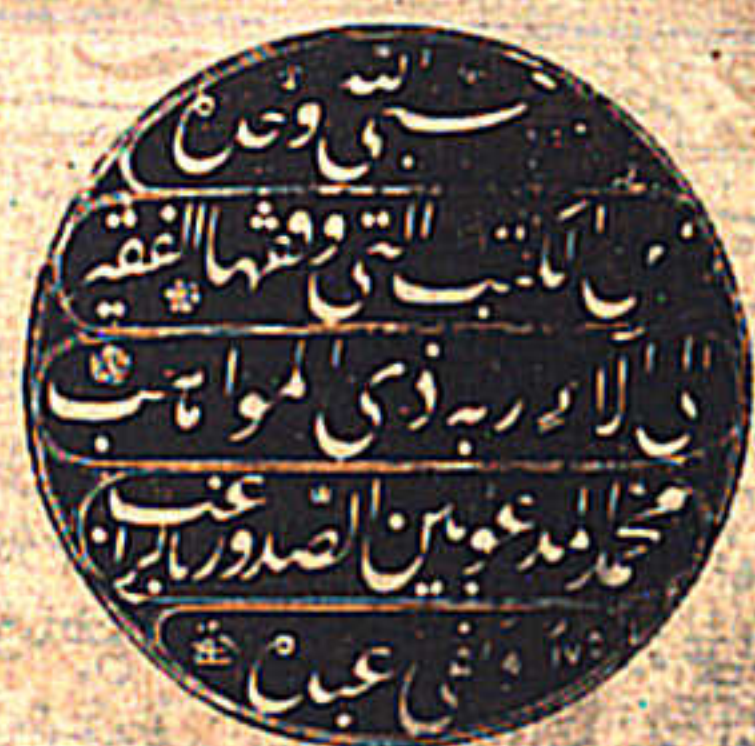 حسبى الله وحده
من الكتب التى وقفها الفقير
الى آلاء ربه ذى المواهب
محمد المدعو بين الصدور بالراغب
عبده